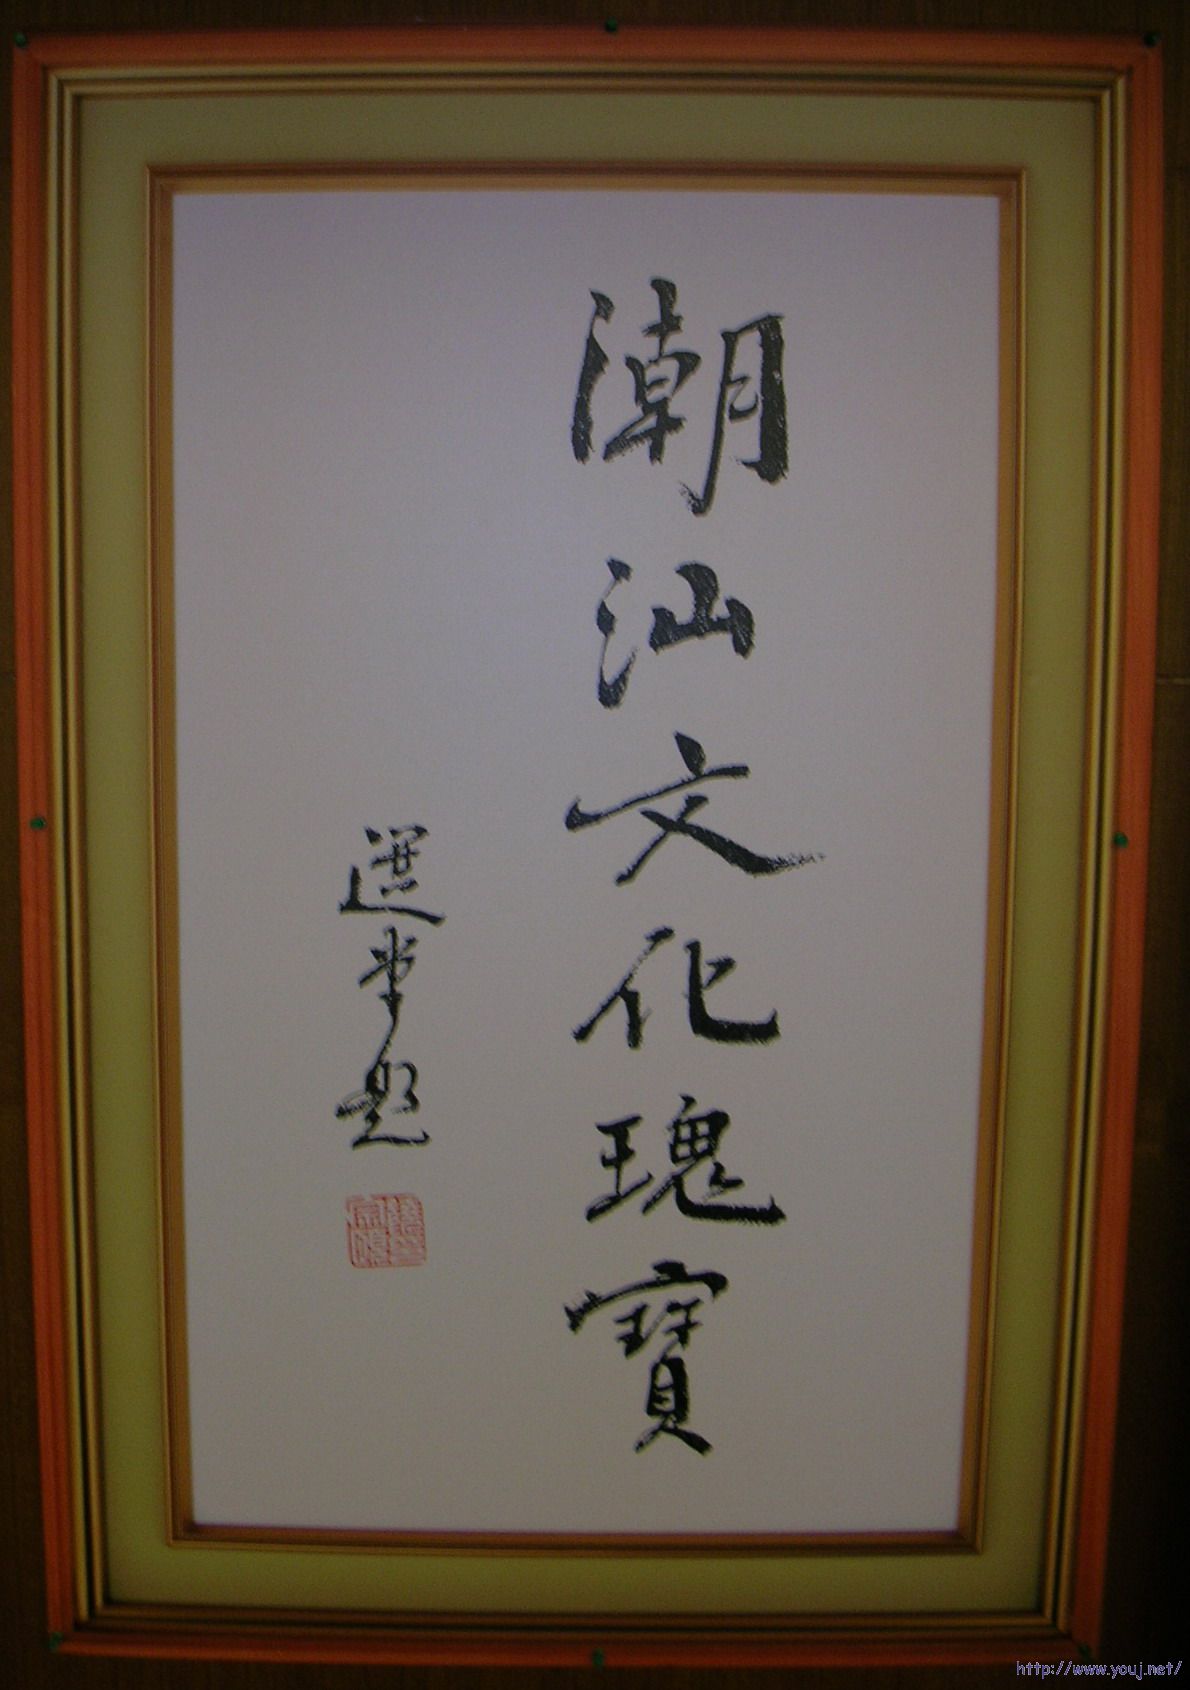 潮汕文化瑰寶
選堂題
饒宗頤
http://www.youj.net/